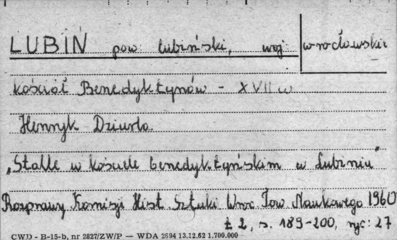 LUBIŃ pow. lubiński, woj. wrocławskie
kościół Benedyktynów - XVII w
Henryk Dziurla
„Stalle w kościele benedyktyńskim w Lubiniu"
Rozprawy Komisji Hist. Sztuki Wroc. Tow. Naukowego 1960
t 2, s. 189-200, ryc: 27
CWD - B-15-b, nr 2827/ZW/P — WDA 2694 13.12.62 1.700.000